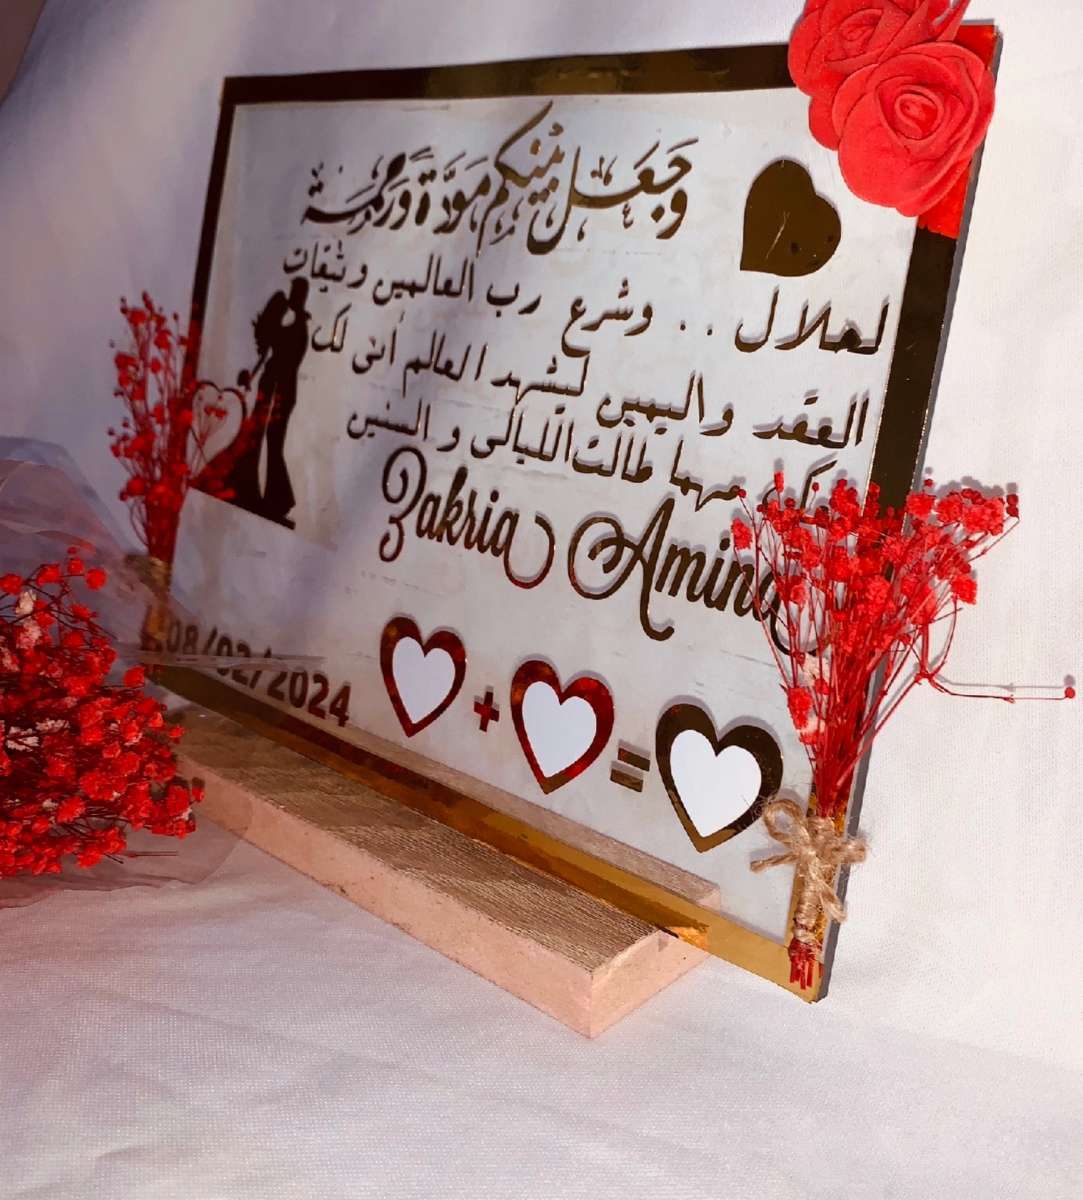 وَجَعَلَ بَيْنَكُم مَوَدَّةً وَرَحْمَةً
لحلال .. وشرع رب العالمين وثيقات
العقد واليمين ليشهد العالم أنى لك
مهما طالت الليالى و السنين
Zakria Amina
08/02/2024
+ =